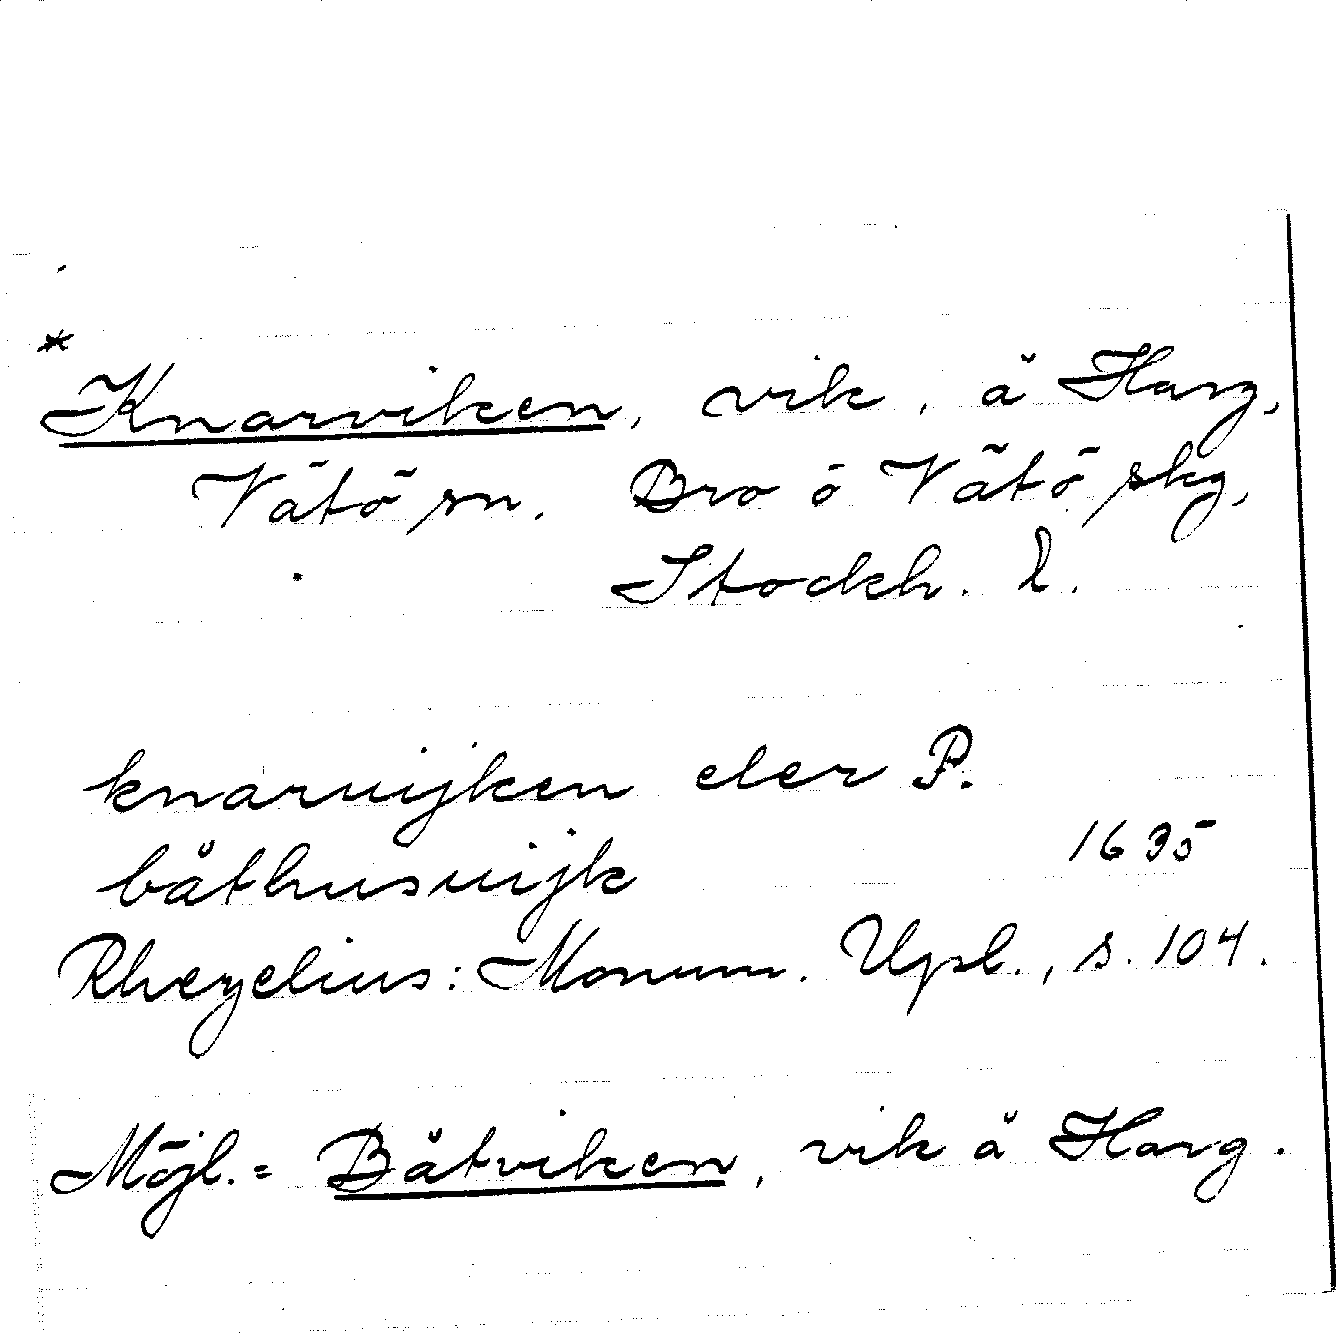 *
Knarviken, vik, å Harg,
Vätö sn. Bro o Vätö skg,
Stockh. l.
knaruijken eler P.
båthusuijk 1635
Rhezelius: Monum. Upl., s. 104.
Möjl. = Båtviken, vik å Harg.